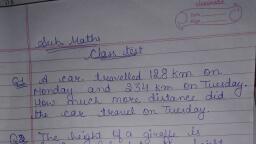 classmate
Date
Page
Sub. Maths
Class test
Q.1 A car travelled 128 km on
Monday and 234 km on Tuesday.
How much more distance did
the car travel on Tuesday.
Q.2 The height of a giraffe is